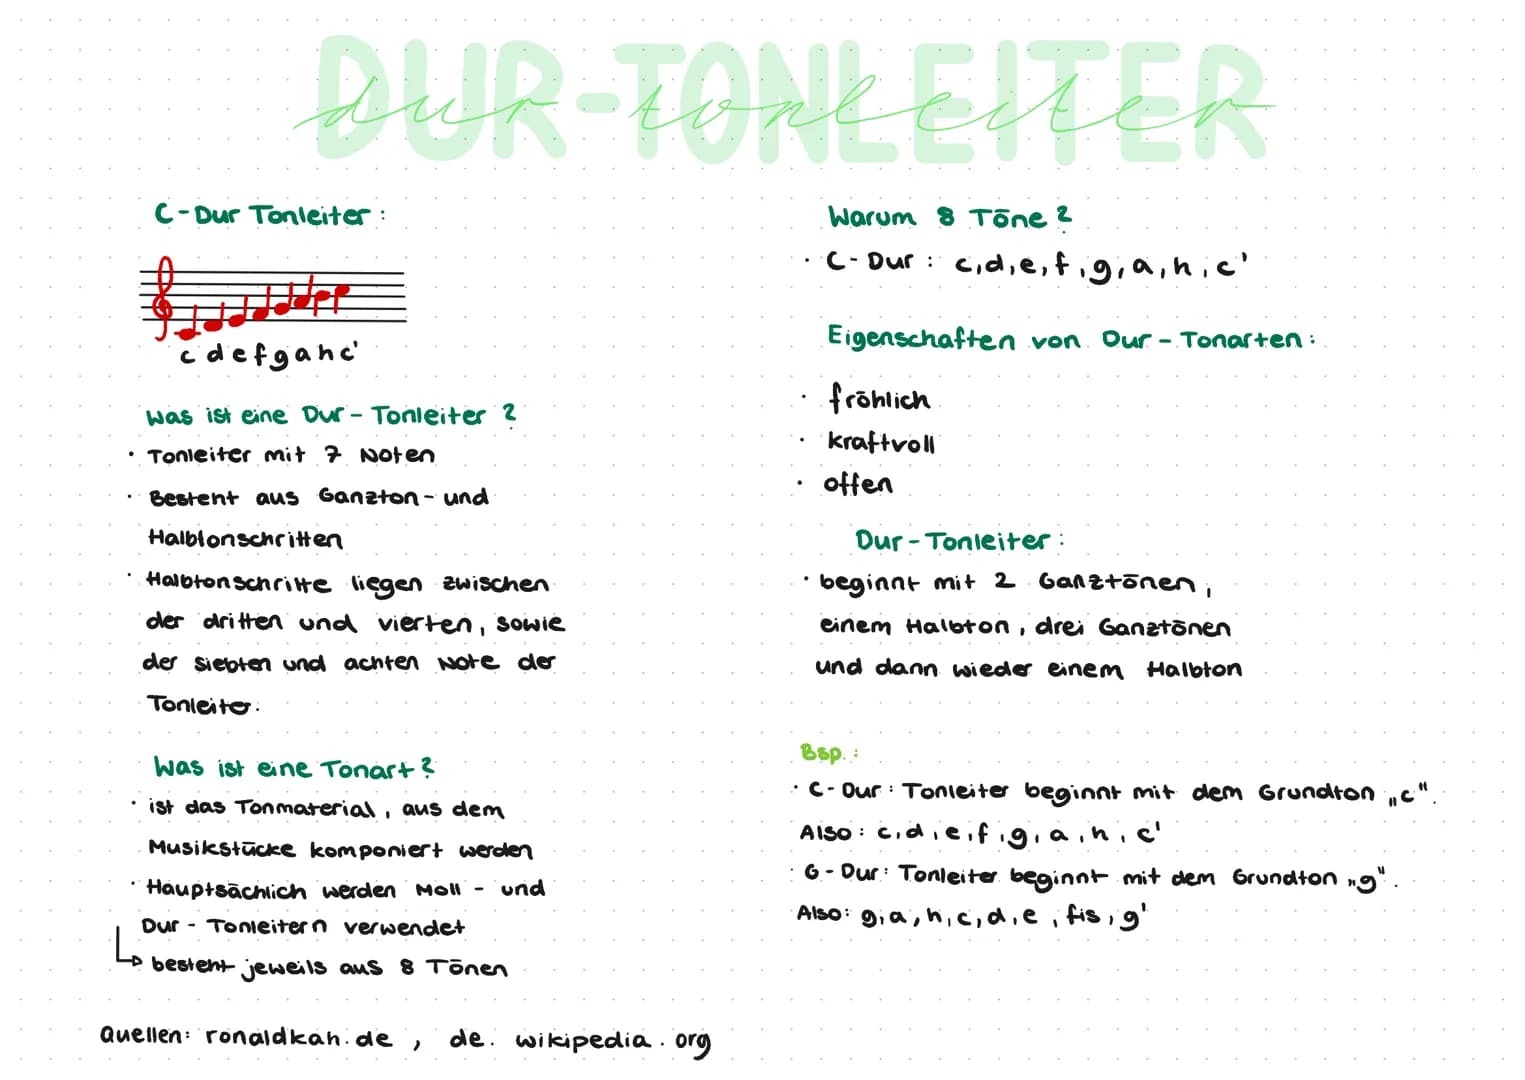 DUR-TONLEITER
dur-tonleiter
C-Dur Tonleiter:
c d e f g a h c'
Was ist eine Dur-Tonleiter?
· Tonleiter mit 7 Noten
· Besteht aus Ganzton- und
Halbtonschritten
· Halbtonschritte liegen zwischen
der dritten und vierten, sowie
der siebten und achten Note der
Tonleiter.
Was ist eine Tonart?
· ist das Tonmaterial, aus dem
Musikstücke komponiert werden
· Hauptsächlich werden Moll- und
Dur-Tonleitern verwendet
↳ besteht jeweils aus 8 Tönen
Quellen: ronaldkah.de, de.wikipedia.org
Warum 8 Töne?
· C-Dur: c,d,e,f,g,a,h,c'
Eigenschaften von Dur-Tonarten:
· fröhlich
· kraftvoll
· offen
Dur-Tonleiter:
· beginnt mit 2 Ganztönen,
einem Halbton, drei Ganztönen
und dann wieder einem Halbton
Bsp.:
· C-Dur: Tonleiter beginnt mit dem Grundton „c".
Also: c,d,e,f,g,a,h,c'
· G-Dur: Tonleiter beginnt mit dem Grundton „g".
Also: g,a,h,c,d,e,fis,g'